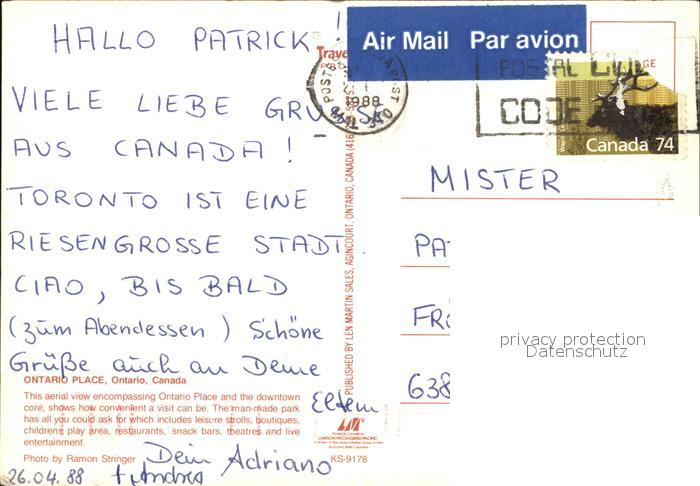 HALLO PATRICK!
VIELE LIEBE GRÜSSE
AUS CANADA!
TORONTO IST EINE
RIESENGROSSE STADT.
CIAO, BIS BALD
(zum Abendessen) Schöne
Grüße auch an Deine
Eltern
Dein Adriano
+ Andrea
26.04.88
ONTARIO PLACE, Ontario, Canada
This aerial view encompassing Ontario Place and the downtown
core, shows how convenient a visit can be. The man-made park
has all you could ask for which includes leisure strolls, boutiques,
children's play area, restaurants, snack bars, theatres and live
entertainment.
Photo by Ramon Stringer
KS-9178
PUBLISHED BY LEN MARTIN SALES, AGINCOURT, ONTARIO, CANADA (416)
Air Mail Par avion
1988
POSTAL
CODE
Canada 74
MISTER
PA
FRÖ
638
privacy protection
Datenschutz